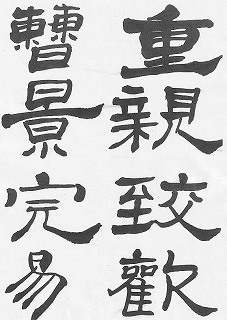 重親致歡
曹景完易